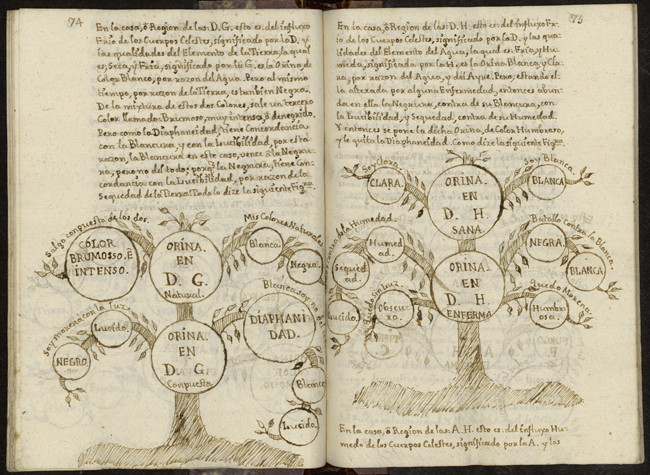 74
En la casa, ò Region de las D. G. esto es: del influxo
Frio de los Cuerpos Celestes, significado por la D. y
las qualidades del Elemento de la Tierra, la qual
es, Seca, y Fria, significado por la G. es la Orina, de
Color Blanco, por razon del Agua. Pero al mismo
tiempo, por razon de la Tierra, es tambien Negra.
De la mixtura de estos dos Colores, sale un tercero
Color llamado: Brumoso, muy intenso, ò denegrido.
Pero como la Diaphaneidad, tiene Concordancia
con la Blancura, y con la Lucibilidad, por esta
razon, la Blancura en este caso, vence à la Negru-
ra, pero no del todo; porq̃ la Negrura, tiene Con-
cordancia con la Lucibilidad, por razon de la
Sequedad de la Tierra. Todo lo dize la siguiente Figᵃ.
Salgo compuesto de los dos.
COLOR
BRUMOSSO, È
INTENSO.
ORINA.
EN
D. G.
Natural.
Mis Colores Naturales
Blanca.
Negra.
Soy morena con la Luz.
Lucida.
NEGRO.
ORINA.
EN
D. G.
Compuesta
Blanca soy, no del
DIAPHANI
DAD.
Blanca
Lucida.
75
En la casa, ò Region de las D. H. esto es: del influxo Fri-
io de los Cuerpos Celestes, significado por la D. y las qua-
lidades del Elemento del Agua, la qual es, Fria, y Hu-
meda, significada por la H. es la Orina, Blanca, y Cla-
ra, por razon del Agua, y del Ayre. Pero, estando el-
la alterada por alguna Enfermedad, entonces abun-
da en ella la Negrura, contra de su Blancura, con
la Lucibilidad, y Sequedad, contra de su Humedad.
Y entonces se pone la dicha Orina, de Color Humbroso,
y le quita la Diaphaneidad. Como dize la siguiente Figᵃ.
Soy Clara.
CLARA.
ORINA.
EN
D. H.
SANA.
Soy Blanca.
BLANCA.
la Humedad.
Humed-
ad.
Sequed-
ad.
Batallo contra la Blanca.
NEGRA.
BLANCA.
Lucida.
Obscu-
ra.
ORINA.
EN
D. H
ENFERMA
Quedo Morena.
Humbro-
sa.
En la casa, ò Region de las A. H. esto es: del influxo Hu-
medo de los Cuerpos Celestes, significado por la A. y las